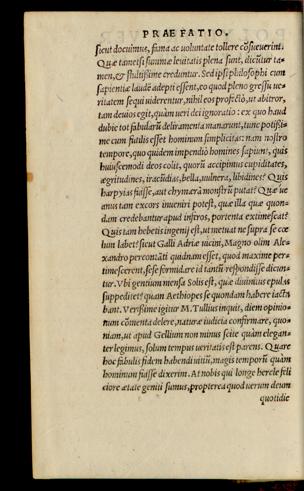 PRAEFATIO.
sicut docuimus, fama ac voluntate tollere cōsueuerint.
Quæ tametsi summæ leuitatis plena sunt, dicūtur ta-
men, & stultissime creduntur. Sed ipsi philosophi cum
sapientiæ laudē adepti essent, eo quod pleno gressu ve-
ritatem sequi viderentur, nihil eos profectò, ut abitror,
tam deuios egit, quàm veri dei ignoratio: ex quo haud
dubie tot fabularū deliramenta manarunt, tunc potissi-
me cum futilis esset hominum simplicitas: nam nostro
tempore, quo quidem impendiò homines sapiunt, quis
huiuscemodi deos colit, quorū accipimus cupiditates,
ægritudines, iracūdias, bella, uulnera, libidines? Quis
harpyias fuisse, aut chymærā monstrū putat? Quæ ue
anus tam excors inueniri potest, quæ illa quæ quon-
dam credebantur apud inferos, portenta extimescat?
Quis tam hebetis ingenij est, ut metuat ne supra se cœ-
lum labet? sicut Galli Adriæ uicini, Magno olim Ale-
xandro percontāti quidnam esset, quod maxime per-
timescerent, sese formidare id tantū respōdisse dicun-
tur. Vbi gentium mensa Solis est, quæ diuinitus epulas
suppeditet? quam Aethiopes se quondam habere iactā
bant. Verissime igitur M. Tullius inquit, diem opinio-
num cōmenta delere, naturæ iudicia confirmare, quo-
niam, ut apud Gellium non minus scite quàm elegan-
ter legimus, solum tempus veritatis est parens. Quare
hoc fabulis fidem habendi uitiū, magis temporū quàm
hominum fuisse dixerim. At nobis qui longe hercle feli
ciore ætate geniti sumus, propterea quod verum deum
quotidie